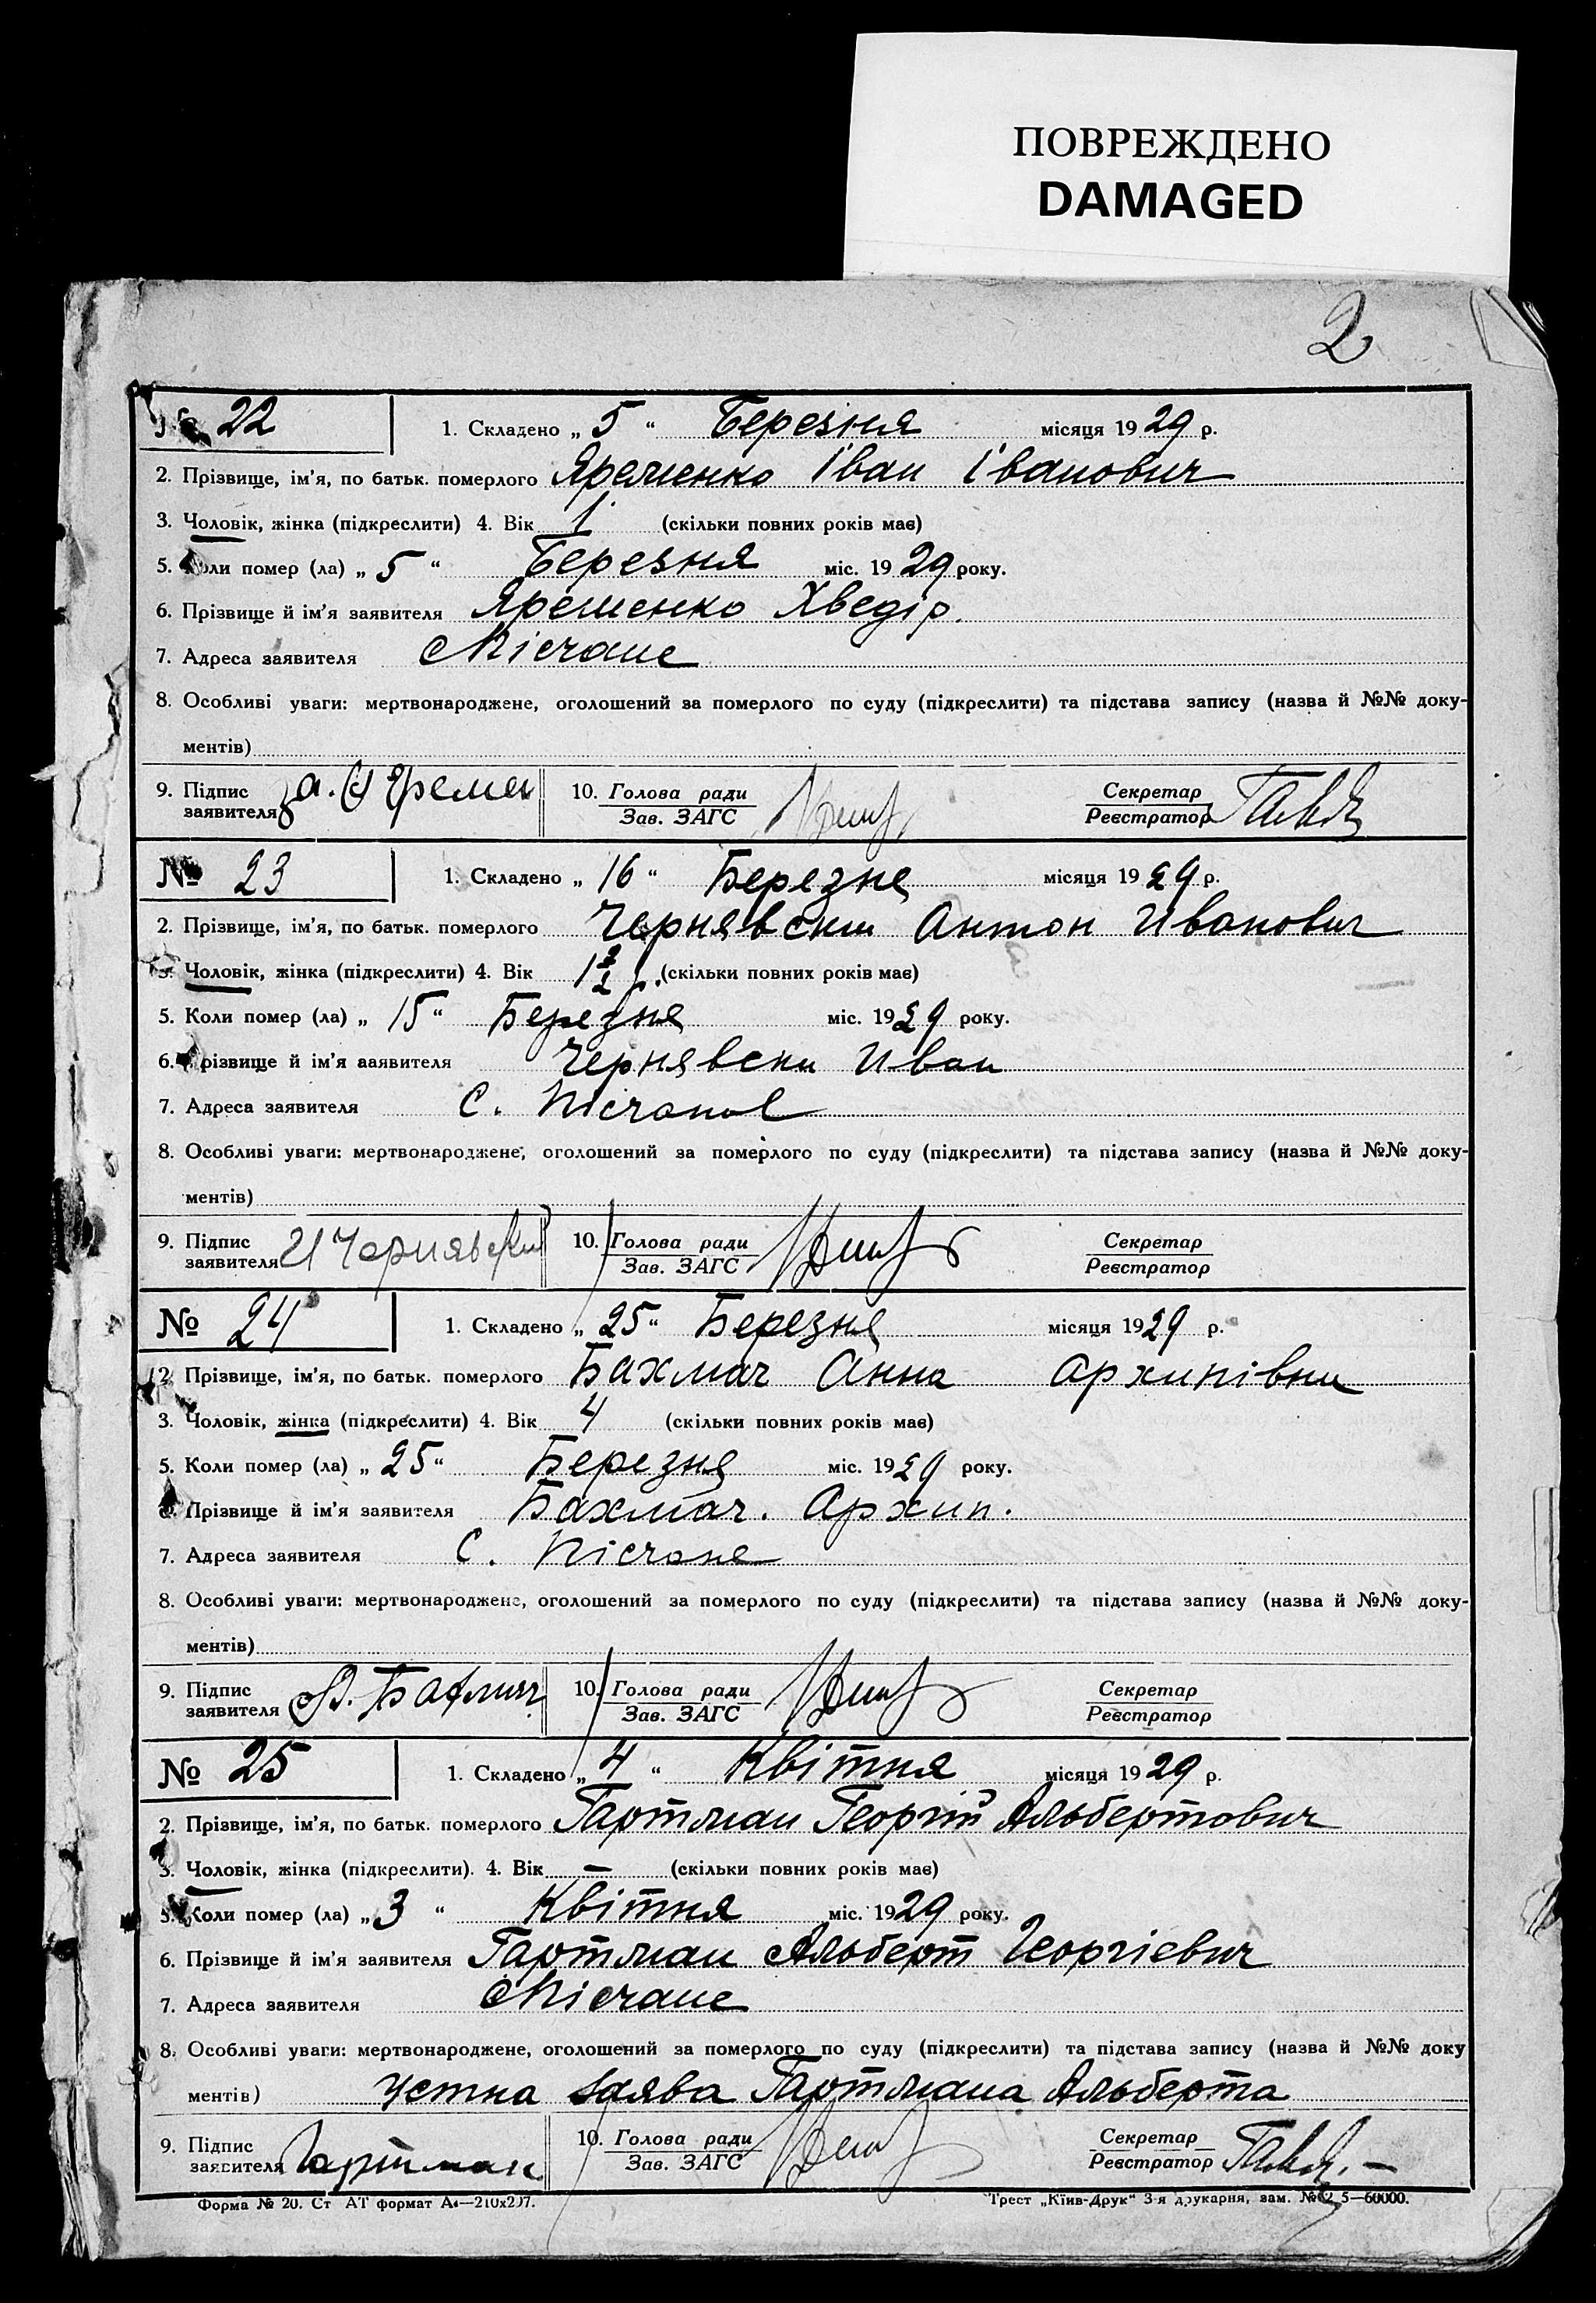 ПОВРЕЖДЕНО
DAMAGED
2
№ 22 1. Складено „ 5 “ Березня місяця 1929 р.
2. Прізвище, ім’я, по батьк. померлого Яременко Іван Іванович
3. Чоловік, жінка (підкреслити) 4. Вік 1 (скільки повних років має)
5. Коли помер (ла) „ 5 “ Березня міс. 1929 року.
6. Прізвище й ім’я заявителя Яременко Хведір.
7. Адреса заявителя Пісчане
8. Особливі уваги: мертвонароджене, оголошений за померлого по суду (підкреслити) та підстава запису (назва й №№ доку-
ментів)
9. Підпис заявителя 10. Голова ради Зав. ЗАГС Секретар Реєстратор
№ 23 1. Складено „ 16 “ Березне місяця 1929 р.
2. Прізвище, ім’я, по батьк. померлого Чернявский Антон Иванович
3. Чоловік, жінка (підкреслити) 4. Вік (скільки повних років має)
5. Коли помер (ла) „ 15 “ Березня міс. 1929 року.
6. Прізвище й ім’я заявителя Чернявски Иван
7. Адреса заявителя С. Пісчаное
8. Особливі уваги: мертвонароджене, оголошений за померлого по суду (підкреслити) та підстава запису (назва й №№ доку-
ментів)
9. Підпис заявителя И Чорнявский 10. Голова ради Зав. ЗАГС Секретар Реєстратор
№ 24 1. Складено „ 25 “ Березня місяця 1929 р.
2. Прізвище, ім’я, по батьк. померлого Бахмач Анна Архипівни
3. Чоловік, жінка (підкреслити) 4. Вік 4 (скільки повних років має)
5. Коли помер (ла) „ 25 “ Березня міс. 1929 року.
6. Прізвище й ім’я заявителя Бахмач. Архип.
7. Адреса заявителя С. Пісчане
8. Особливі уваги: мертвонароджене, оголошений за померлого по суду (підкреслити) та підстава запису (назва й №№ доку-
ментів)
9. Підпис заявителя 10. Голова ради Зав. ЗАГС Секретар Реєстратор
№ 25 1. Складено „ 4 “ Квітня місяця 1929 р.
2. Прізвище, ім’я, по батьк. померлого Гартман Георгій Альбертович
3. Чоловік, жінка (підкреслити). 4. Вік — (скільки повних років має)
5. Коли помер (ла) „ 3 “ Квітня міс. 1929 року.
6. Прізвище й ім’я заявителя Гартман Альберт Георгієвич
7. Адреса заявителя Пісчане
8. Особливі уваги: мертвонароджене, оголошений за померлого по суду (підкреслити) та підстава запису (назва й №№ доку
ментів) Устна заява Гартмана Альберта
9. Підпис заявителя Гартман 10. Голова ради Зав. ЗАГС Секретар Реєстратор
Форма № 20. Ст АТ формат А4—210х297. Трест „Київ-Друк“ 3-я друкарня, зам. № 5—60000.